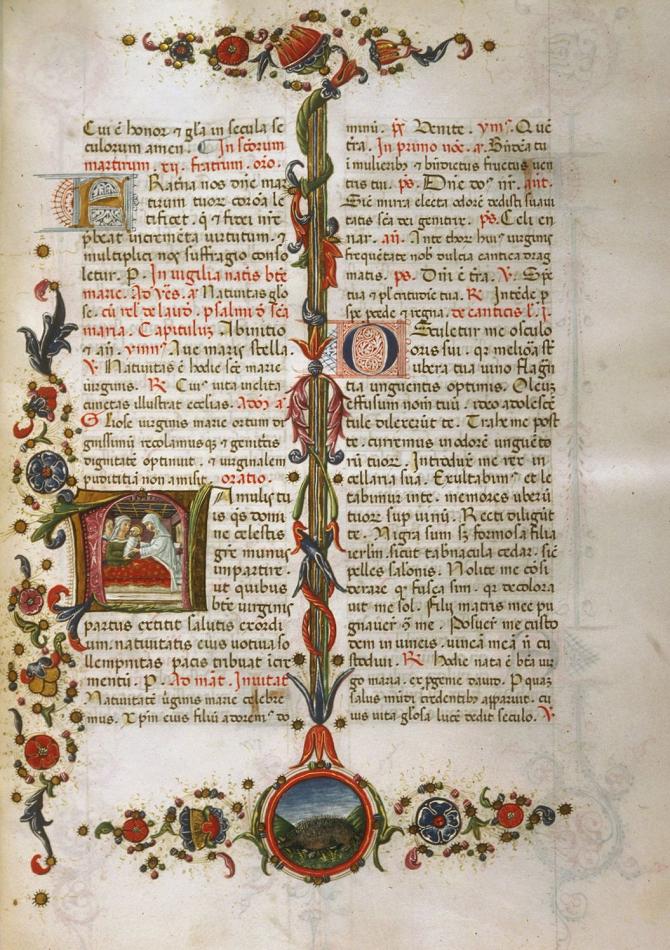 Cui ē honor ⁊ gl̄a in secula se
culorum amen. In sc̄orum
martirum. xii. fratrum. oro.
Ratr̄na nos dn̄e mar
tirum tuor corōa le
tificet. q̄ ⁊ fidei nr̄e
p̄beat incremēta uirtutum. ⁊
multiplici nos suffragio conso
letur. P. In uigilia natīs btē
marie. Ad ṽes. a. Natiuitas glo
se. cū rel̄ de laud. psalmi ꝯ sc̄a
maria. Capitulum Abinitio
⁊ añ. ymn⁹ Aue maris stella.
V. Natiuitas ē hodie sc̄e marie
uirginis. R. Cui⁹ uita inclita
cunctas illustrat ecclias. Ad
Gliose uirginis marie ortum di
gnissimū recolamus q̄ ⁊ genitris
dignitatē optinuit. ⁊ uirginalem
pudititiā non amisit. oratio.
Famulis tu
is q̄s domi
ne celestis
grē munus
impartire.
ut quibus
btē uirginis
partus extitit salutis exordi
um. natiuitatis eius uotiua so
llempnitas pacis tribuat icre
mentū. P. Ad māt. Inuitat
Natiuitatē ūginis marie celebre
mus. Xp̄m eius filiū adorem⁹ do
minū. p̄s Venite. ym⁹. Q uē
t̄ra. In primo noc̄. a. Bn̄dcā tu
i mulierib⁹ ⁊ bn̄dictus fructus uen
tris tui. ps. Dn̄e do⁹ nr̄. ant.
Sic̄ mirra electa odorē dedisti suaui
tatis sc̄a dei genitrix. ps. Celi en
nar. añ. Ante thor̄ hui⁹ uirginis
frequētate nob̄ dulcia cantica drag
matis. ps. Dn̄i ē t̄ra. V. Spē
tua ⁊ plc̄ritudīe tua. R. Intēde p
spe p̄cede ⁊ regna. de canticis l. i.
Osculetur me osculo
oris sui. q̄ meliōa st̄
ubera tua uino flagrā
tia unguentis optimis. Oleuz
effusum nom̄ tuū. ideo adolescē
tule dilexerūt te. Trahe me post
te. curremus in odorē unguēto
rū tuor. Introduxit me rex in
cellaria sua. Exultabim⁹ et le
tabimur in te. memores uberū
tuor sup uinū. Recti diligūt
te. Nigra sum sz formosa filia
ierlm̄. sicut tabnacula cedar. sic̄
pelles salonis. Nolite me cōsi
derare q̄ fusca sim. q̄ decolora
uit me sol. Filij matris mee pu
gnauer̄ ꝯ me. Posuer̄ me custo
dem in uineis. uineā meā n̄ cu
stodiui. R. Hodie nata ē btā uir
go maria. ex p̄genie dauid. P quaz
salus mūdi credentib⁹ apparuit. cu
ius uita gl̄osa lucē dedit seculo. V.